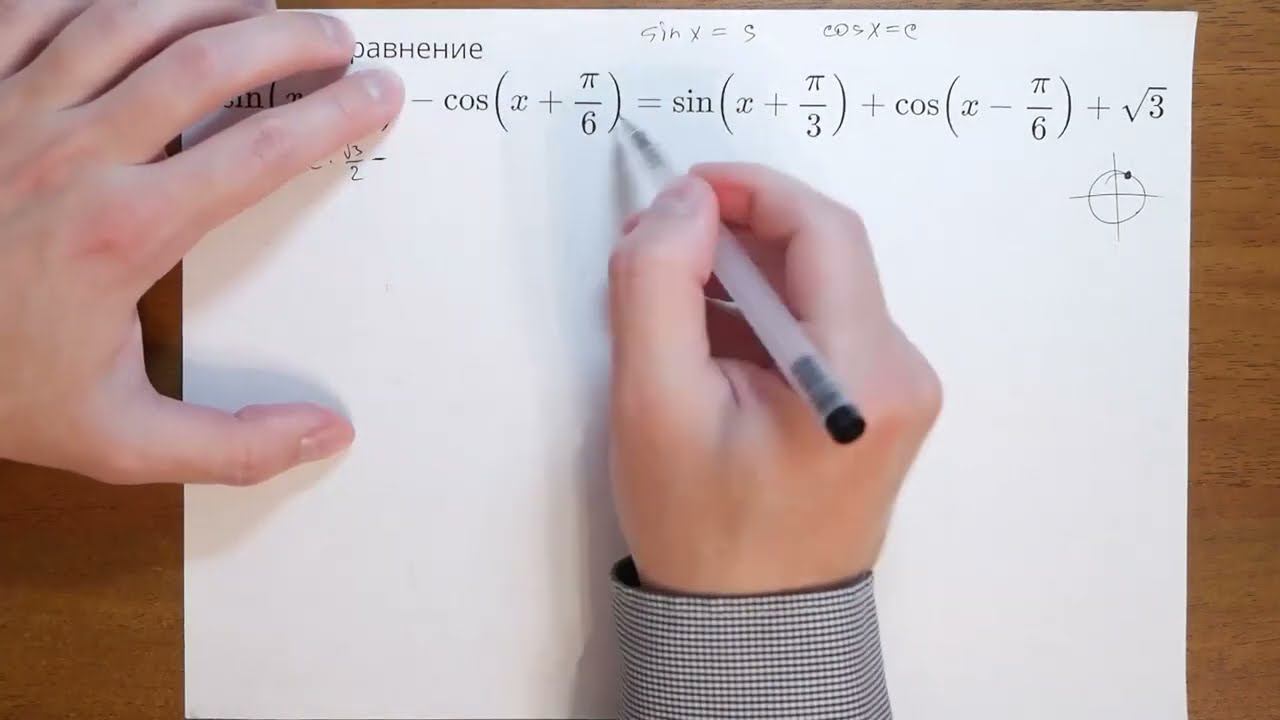 sin x = s cos x = c
равнение
sin(x − cos(x + π/6) = sin(x + π/3) + cos(x − π/6) + √3
· √3/2 −